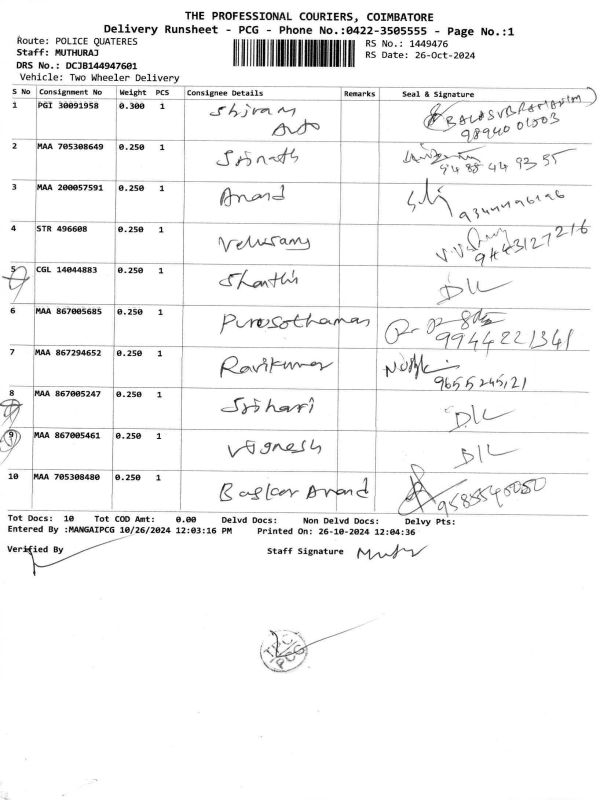 THE PROFESSIONAL COURIERS, COIMBATORE
Delivery Runsheet - PCG - Phone No.:0422-3505555 - Page No.:1
Route: POLICE QUATERES RS No.: 1449476
Staff: MUTHURAJ RS Date: 26-Oct-2024
DRS No.: DCJB144947601
Vehicle: Two Wheeler Delivery
S No Consignment No Weight PCS Consignee Details Remarks Seal & Signature
1 PGI 30091958 0.300 1 Shiram Auto BALASUBRAMANIM
2 MAA 705308649 0.250 1 Srinath
3 MAA 200057591 0.250 1 Anand
4 STR 496608 0.250 1 Velusamy 9443127216
5 CGL 14044883 0.250 1 Shanthi D/L
6 MAA 867005685 0.250 1 Purusothaman 9944221341
7 MAA 867294652 0.250 1 Ravikumar 9655245121
8 MAA 867005247 0.250 1 Srihari D/L
9 MAA 867005461 0.250 1 Vignesh D/L
10 MAA 705308480 0.250 1 Baskar Anand 9585540050
Tot Docs: 10 Tot COD Amt: 0.00 Delvd Docs: Non Delvd Docs: Delvy Pts:
Entered By :MANGAIPCG 10/26/2024 12:03:16 PM Printed On: 26-10-2024 12:04:36
Verified By Staff Signature
TPC
PCG